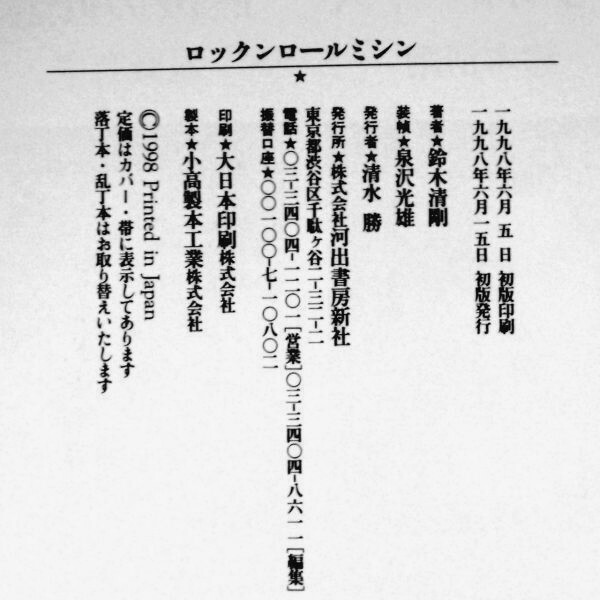 ロックンロールミシン
★
一九九八年六月 五 日 初版印刷
一九九八年六月一五日 初版発行
著者★鈴木清剛
装幀★泉沢光雄
発行者★清水 勝
発行所★株式会社河出書房新社
東京都渋谷区千駄ヶ谷二-三二-二
電話★〇三-三四〇四-一二〇一[営業]〇三-三四〇四-八六一一[編集]
振替口座★〇〇一〇〇-七-一〇八〇二
印刷★大日本印刷株式会社
製本★小高製本工業株式会社
©1998 Printed in Japan
定価はカバー・帯に表示してあります
落丁本・乱丁本はお取り替えいたします